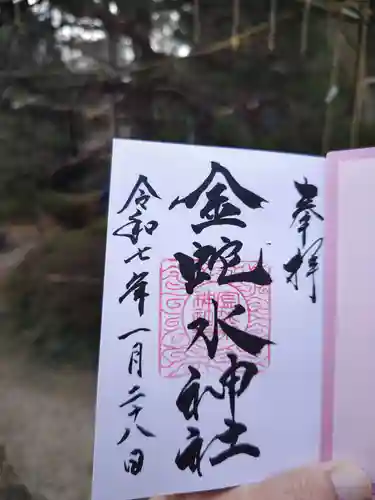 奉拝
金蛇水神社
令和七年一月二十八日